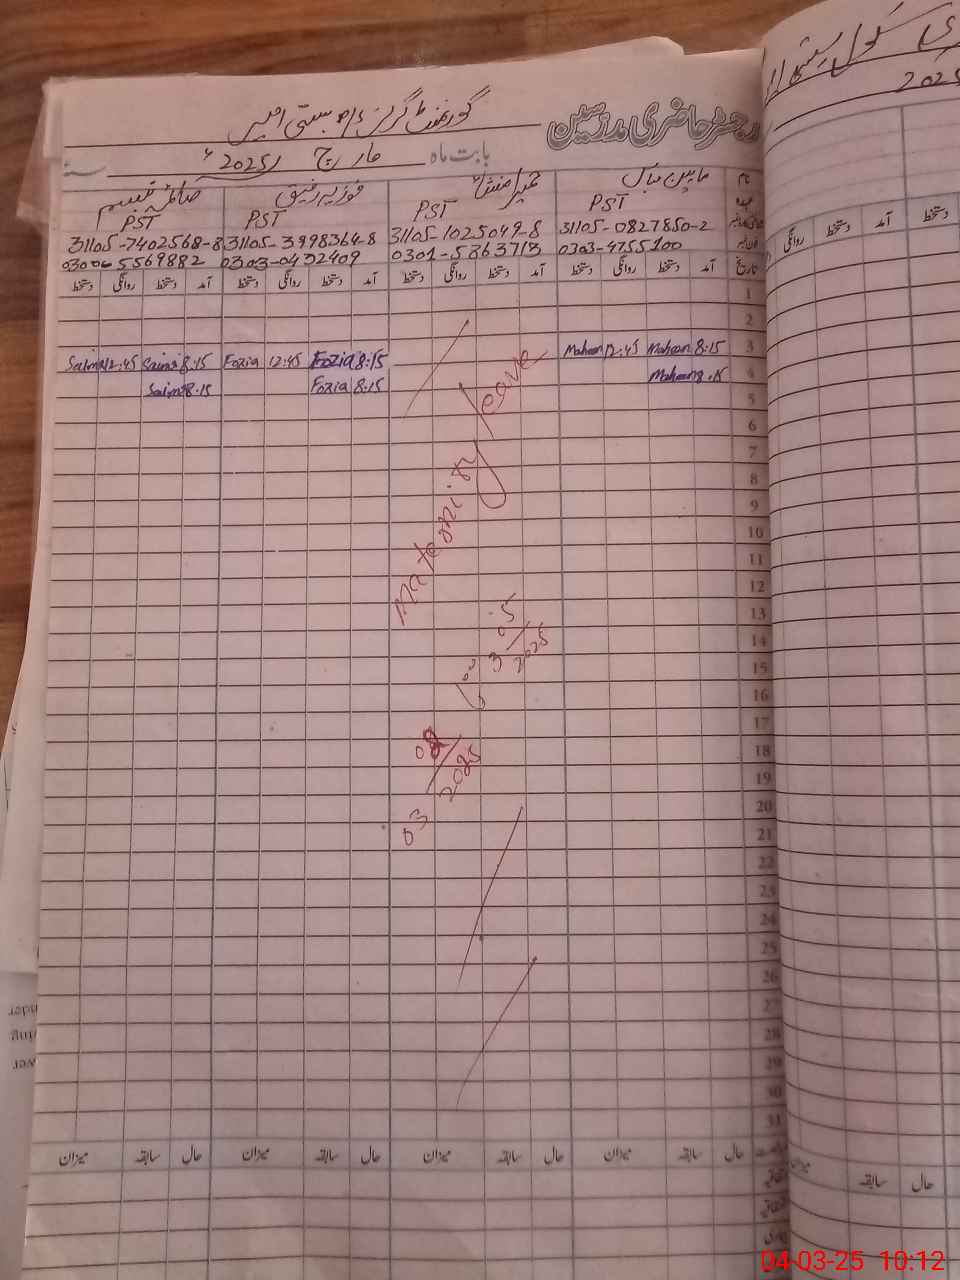 رجسٹر حاضری مدرسین گورنمنٹ گرلز پ/س بستی
بابت ماہ مارچ 2025ء سنہ
نام ماہین بلال حمیرا منشاء فوزیہ رفیق صائمہ نسیم
عہدہ PST PST PST PST
31105-0827850-2 31105-1025049-8 31105-3998364-8 31105-7402568-8
0303-4755100 0301-5363713 0303-0432409 030065569882
تاریخ آمد دستخط روانگی دستخط آمد دستخط روانگی دستخط آمد دستخط روانگی دستخط آمد دستخط روانگی دستخط
1
2
3 8:15 Maheen 12:45 Maheen 8:15 Fozia 12:45 Fozia 8:15 Saima 12:45 Saima
4 8:15 Maheen 8:15 Fozia 8:15 Saima
5
6
7
8
9
10
11
12
13
14
15
16
17
18
19
20
21
22
23
24
25
26
27
28
29
30
31
Maternity leave
03 2025
03 05 2025
حال سابقہ میزان حال سابقہ میزان حال سابقہ میزان حال سابقہ میزان
اتفاقیہ
2025
آمد دستخط روانگی دستخط
حال سابقہ میزان
04-03-25 10:12